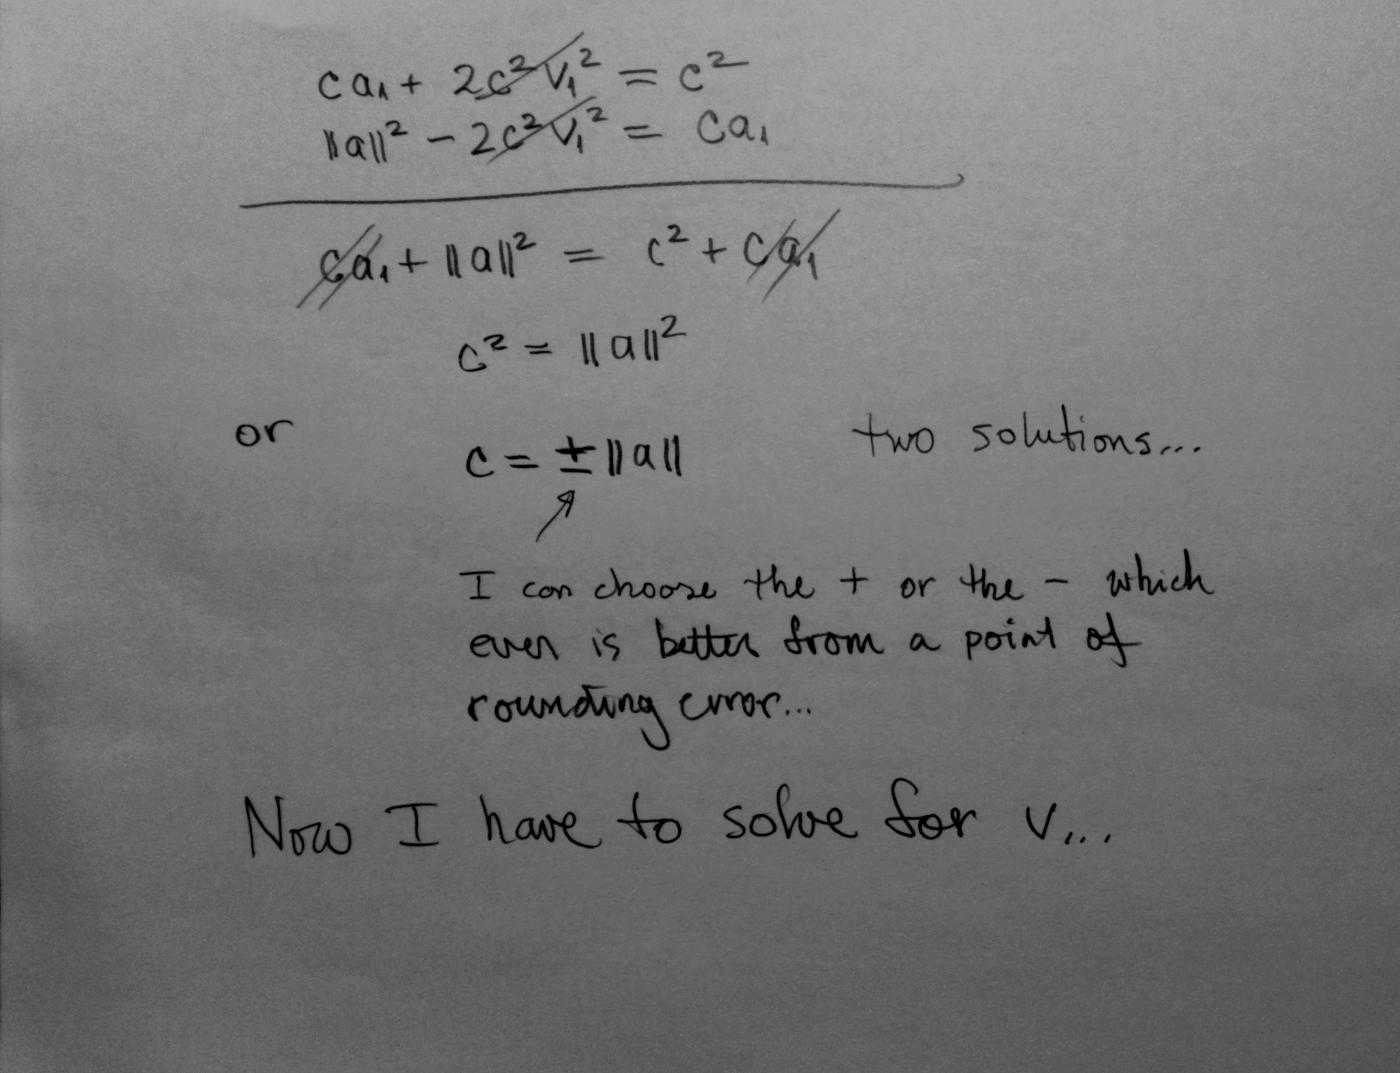 ca₁ + 2c²v₁² = c²
||a||² - 2c²v₁² = ca₁
ca₁ + ||a||² = c² + ca₁
c² = ||a||²
or c = ±||a|| two solutions...
I can choose the + or the - which
ever is better from a point of
rounding error...
Now I have to solve for v...